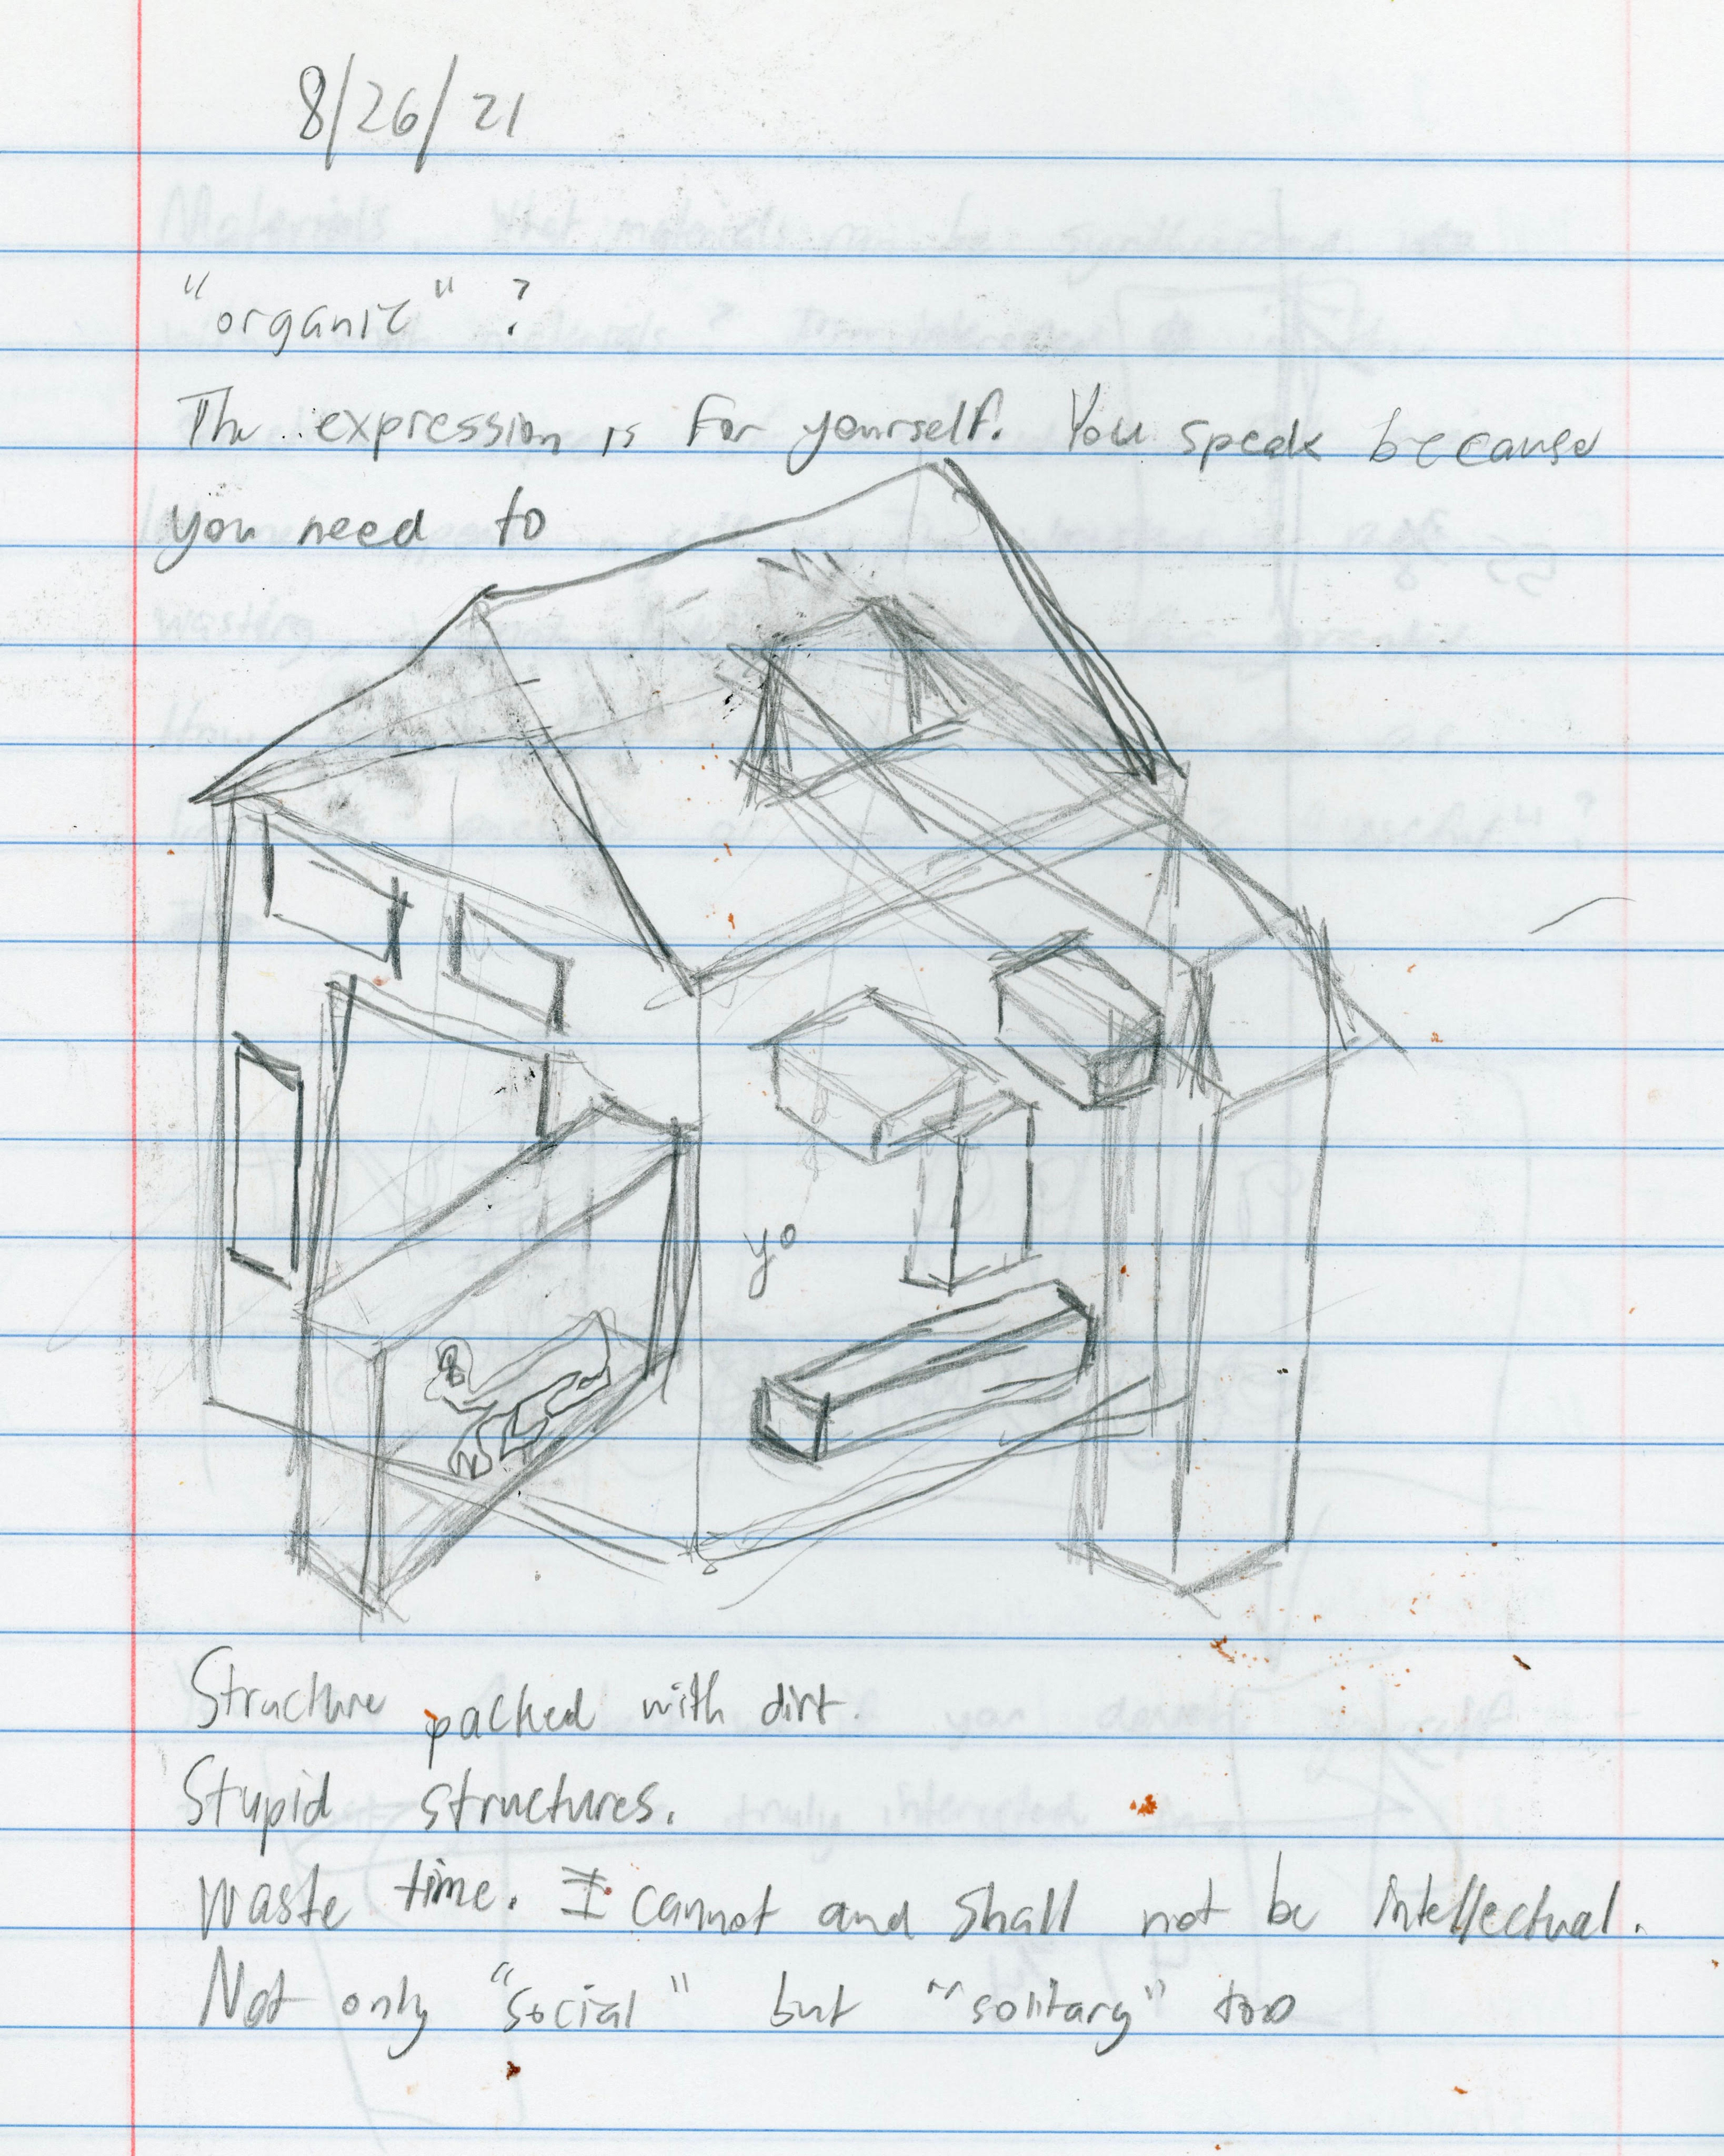 8/26/21
"organic" ?
The expression is for yourself. You speak because
you need to
yo
Structure packed with dirt.
Stupid structures.
Waste time. I cannot and shall not be intellectual.
Not only "social" but "solitary" too